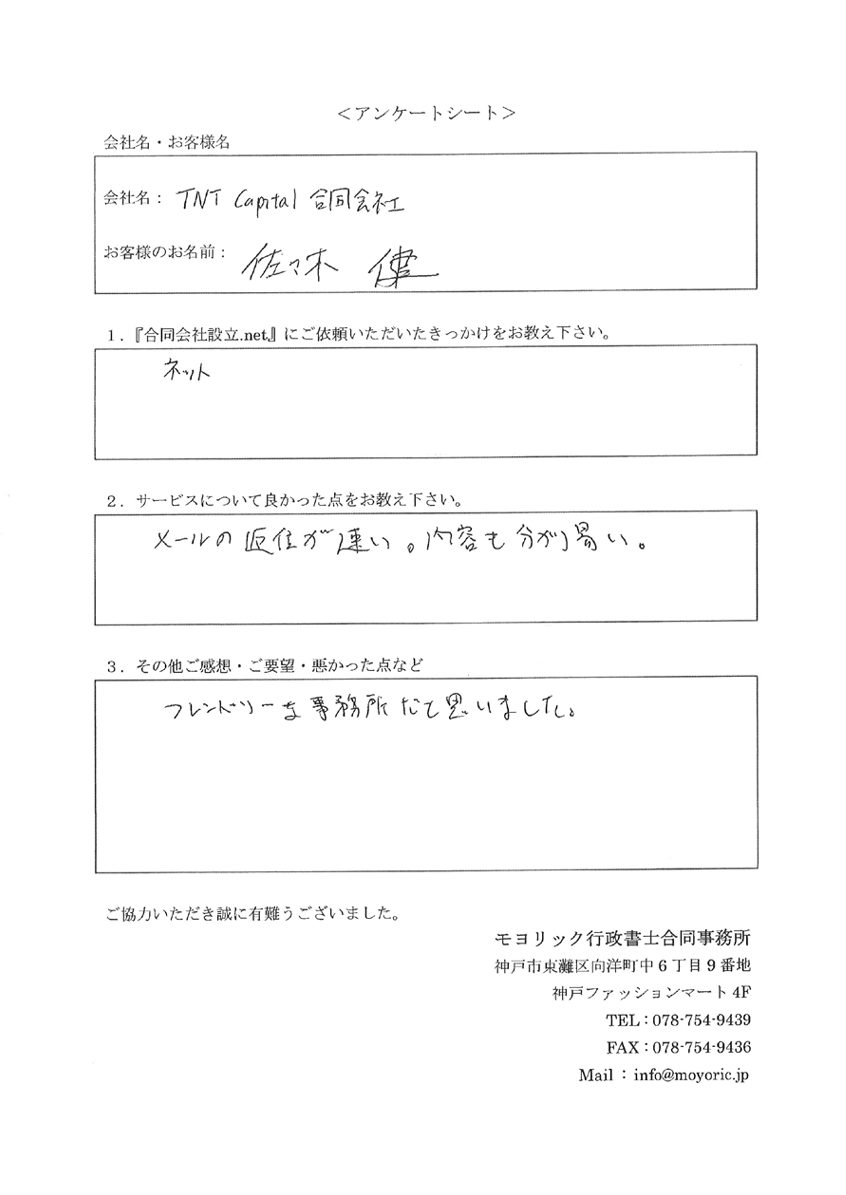 ＜アンケートシート＞
会社名・お客様名
会社名： TNT Capital 合同会社
お客様のお名前： 佐々木 健
１．『合同会社設立.net』にご依頼いただいたきっかけをお教え下さい。
ネット
２．サービスについて良かった点をお教え下さい。
メールの返信が速い。内容も分かり易い。
３．その他ご感想・ご要望・悪かった点など
フレンドリーな事務所だと思いました。
ご協力いただき誠に有難うございました。
モヨリック行政書士合同事務所
神戸市東灘区向洋町中６丁目９番地
神戸ファッションマート 4F
TEL：078-754-9439
FAX：078-754-9436
Mail ： info@moyoric.jp